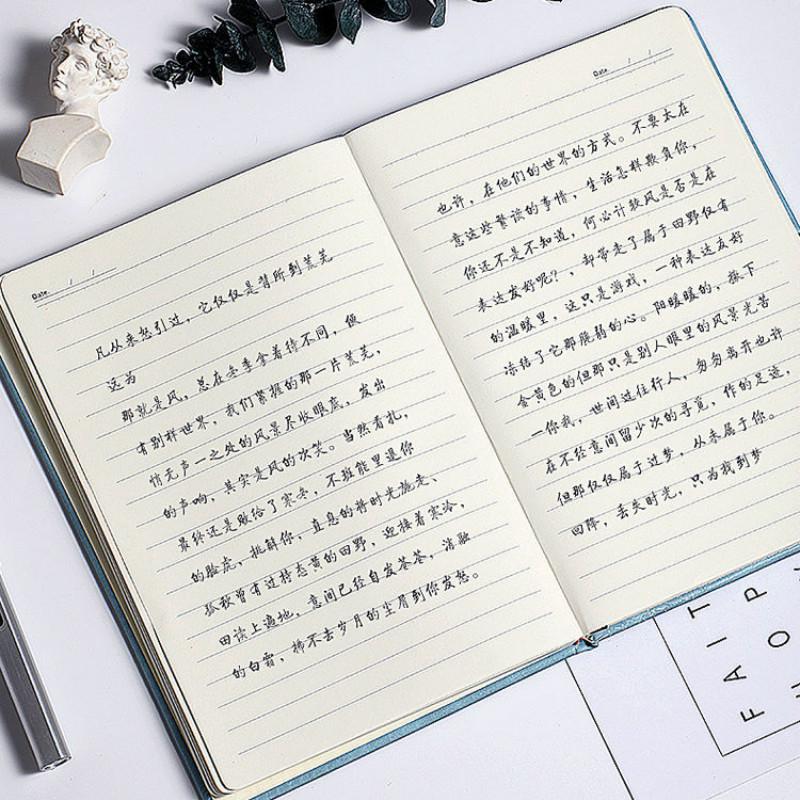 Date / /
凡从来怒引过，它仅仅是替所到荒芜
远为
那就是风，总在冬季拿着待不同，便
有别样世界，我们掌握的那一片荒芜，
悄无声一之处的风景尽收眼底。发出
的声响，其实是风的次笑。当然看札，
最终还是败给了寒冬，不班能里退你
的脸庞，挑解你，直息的将时光施走、
孤秋曾有过持态黄的田野，迎接着寒冷，
田读上遍地，意间已经自发苍苍，消融
的白霜，拂不去岁月的尘眉到你发怒。
Date / /
也许，在他们的世界的方式。不要太在
意这些繁误的事情，生活怎样欺负你，
你还不是不知道，何必计较风是否是在
表达友好呢？，却带走了属于田野仅有
的温暖里，这只是游戏，一种表达友好
冻结了它那脆弱的心。阳暖暖的，揪下
金黄色的但那只是别人眼里的风景光苦
一你我，世间过往行人，匆匆离开也许
在不经意间留少次的寻觅，作的足迹，
但那仅仅属于过梦，从未属于你。
回降，丢失时光，只为找到梦
FAIT
HOP